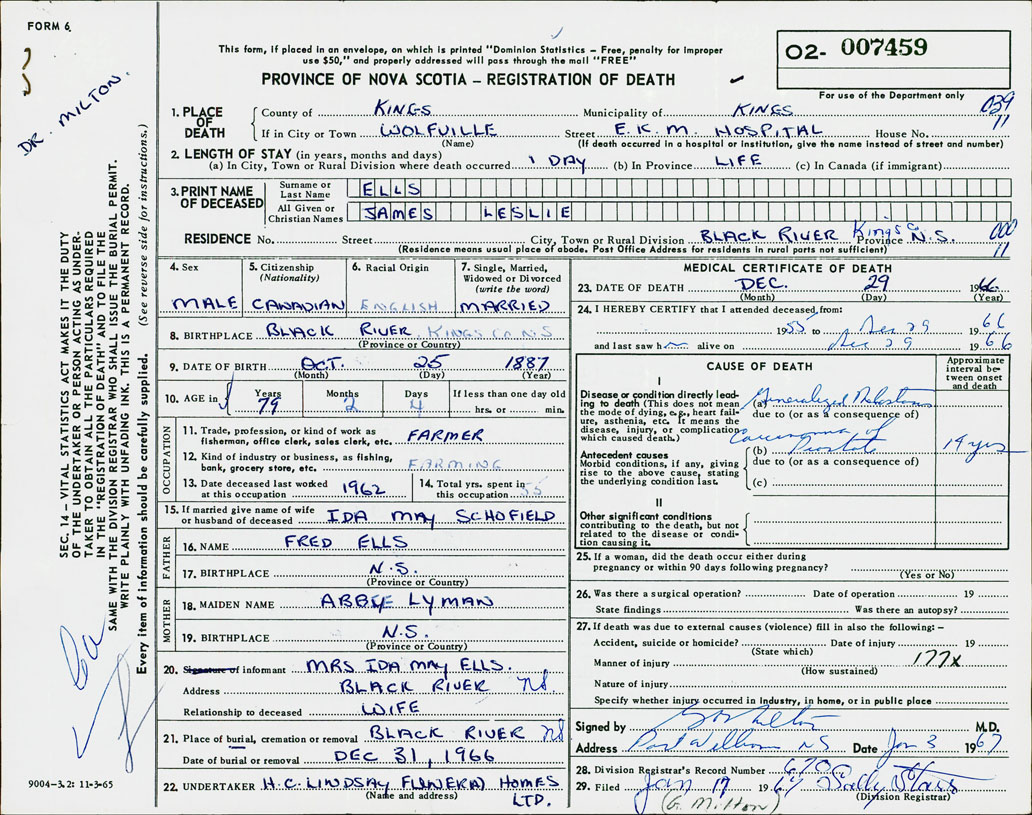 FORM 6.
DR. MILTON.
This form, if placed in an envelope, on which is printed "Dominion Statistics – Free, penalty for improper
use $50," and properly addressed will pass through the mail "FREE"
PROVINCE OF NOVA SCOTIA – REGISTRATION OF DEATH
02- 007459
For use of the Department only
039
11
1. PLACE OF DEATH
County of KINGS Municipality of KINGS
If in City or Town WOLFVILLE Street E.K.M. HOSPITAL House No.
(Name) (If death occurred in a hospital or institution, give the name instead of street and number)
2. LENGTH OF STAY (in years, months and days)
(a) In City, Town or Rural Division where death occurred 1 DAY (b) In Province LIFE (c) In Canada (if immigrant)
3. PRINT NAME OF DECEASED
Surname or Last Name ELLS
All Given or Christian Names JAMES LESLIE
RESIDENCE No. Street City, Town or Rural Division BLACK RIVER Kings Co Province N.S.
000
11
(Residence means usual place of abode. Post Office Address for residents in rural parts not sufficient)
4. Sex
MALE
5. Citizenship
(Nationality)
CANADIAN
6. Racial Origin
ENGLISH
7. Single, Married,
Widowed or Divorced
(write the word)
MARRIED
8. BIRTHPLACE BLACK RIVER KINGS CO. N.S
(Province or Country)
9. DATE OF BIRTH OCT. 25 1887
(Month) (Day) (Year)
10. AGE in
Years Months Days If less than one day old
79 2 4 hrs. or min.
OCCUPATION
11. Trade, profession, or kind of work as
fisherman, office clerk, sales clerk, etc. FARMER
12. Kind of industry or business, as fishing,
bank, grocery store, etc. FARMING
13. Date deceased last worked
at this occupation 1962
14. Total yrs. spent in
this occupation 55
15. If married give name of wife
or husband of deceased IDA MAY SCHOFIELD
FATHER
16. NAME FRED ELLS
17. BIRTHPLACE N.S.
(Province or Country)
MOTHER
18. MAIDEN NAME ABBYE LYMAN
19. BIRTHPLACE N.S.
(Province or Country)
20. Signature of informant MRS IDA MAY ELLS.
Address BLACK RIVER NS.
Relationship to deceased WIFE
21. Place of burial, cremation or removal BLACK RIVER NS
Date of burial or removal DEC 31, 1966
22. UNDERTAKER H.C. LINDSAY FUNERAL HOMES
(Name and address) LTD.
MEDICAL CERTIFICATE OF DEATH
23. DATE OF DEATH DEC. 29 1966
(Month) (Day) (Year)
24. I HEREBY CERTIFY that I attended deceased from:
1955 to Dec 29 1966
and last saw him alive on Dec 29 1966
CAUSE OF DEATH
Approximate
interval be-
tween onset
and death
I
Disease or condition directly lead-
ing to death (This does not mean
the mode of dying, e.g., heart fail-
ure, asthenia, etc. It means the
disease, injury, or complication
which caused death.)
(a) Generalized
due to (or as a consequence of)
Carcinoma of
(b) Prostate 14 yrs
due to (or as a consequence of)
(c)
Antecedent causes
Morbid conditions, if any, giving
rise to the above cause, stating
the underlying condition last.
II
Other significant conditions
contributing to the death, but not
related to the disease or condi-
tion causing it.
25. If a woman, did the death occur either during
pregnancy or within 90 days following pregnancy?
(Yes or No)
26. Was there a surgical operation? Date of operation 19
State findings Was there an autopsy?
27. If death was due to external causes (violence) fill in also the following:–
Accident, suicide or homicide? Date of injury 19
(State which)
Manner of injury 177x
(How sustained)
Nature of injury
Specify whether injury occurred in industry, in home, or in public place
Signed by Milton M.D.
Address Port Williams NS Date Jan 3 1967
28. Division Registrar's Record Number 670
29. Filed Jan 17 1967 Sally Starr
(G. Milton) (Division Registrar)
SEC. 14 – VITAL STATISTICS ACT MAKES IT THE DUTY
OF THE UNDERTAKER OR PERSON ACTING AS UNDER-
TAKER TO OBTAIN ALL THE PARTICULARS REQUIRED
IN THE "REGISTRATION OF DEATH" AND TO FILE THE
SAME WITH THE DIVISION REGISTRAR WHO SHALL ISSUE THE BURIAL PERMIT.
WRITE PLAINLY WITH UNFADING INK. THIS IS A PERMANENT RECORD.
Every item of information should be carefully supplied. (See reverse side for instructions.)
9004-3.2: 11-3-65